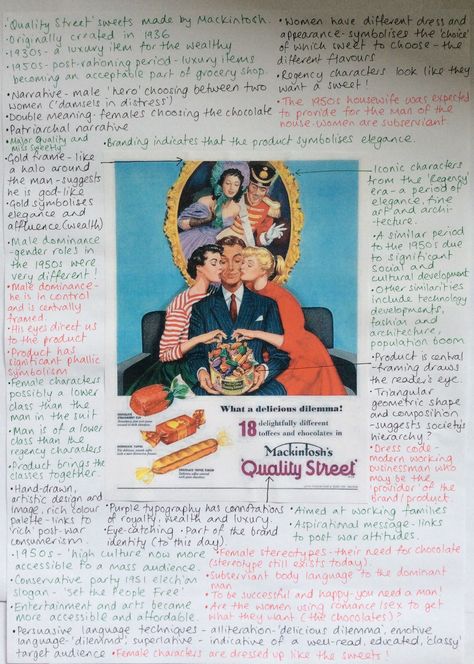 ·'Quality Street' sweets made by Mackintosh.
·Originally created in 1936
·1930s - a luxury item for the wealthy
·1950s - post-rationing period - luxury items
becoming an acceptable part of grocery shop.
·Narrative - male 'hero' choosing between two
women ('damsels in distress')
·Double meaning - females choosing the chocolate
·Patriarchal narrative
·Women have different dress and
appearance - symbolises the 'choice'
of which sweet to choose - the
different flavours
·Regency characters look like they
want a sweet!
·The 1950s housewife was expected
to provide for the man of the
house - women are subservient.
'Major Quality and
Miss Sweetly'
·Branding indicates that the product symbolises elegance.
·Gold frame - like
a halo around
the man - suggests
he is god-like
·Gold symbolises
elegance and
affluence (wealth)
·Male dominance
- gender roles in
the 1950s were
very different!
·Male dominance -
he is in control
and is centrally
framed
·His eyes direct us
to the product
·Product has
significant phallic
symbolism
·Female characters
possibly a lower
class than the
man in the suit
·Man is of a lower
class than the
regency characters
·Product brings the
classes together.
·Hand-drawn,
artistic design and
image, rich colour
palette - links to
'rich' post-war
consumerism
Iconic characters
from the 'Regency'
era - a period of
elegance, fine
art and archi-
tecture.
·A similar period
to the 1950s due
to significant
social and
cultural development
·Other similarities
include technology
developments,
fashion and
architecture,
population boom
·Product is central
- framing draws
the reader's eye.
·Triangular
geometric shape
and composition
- suggests society's
hierarchy?
·Dress code -
modern working
businessman who
may be the
'provider' of the
brand/product.
What a delicious dilemma!
18 delightfully different
toffees and chocolates in
Mackintosh's
'Quality Street'
·Purple typography has connotations
of royalty, wealth and luxury.
·Eye-catching - Part of the brand
identity (to this day)
·Aimed at working families
·Aspirational message - links
to post war attitudes.
·1950s - 'high culture' now more
accessible to a mass audience.
·Conservative party 1951 election
slogan - 'Set the People Free'
·Entertainment and arts became
more accessible and affordable.
·Female stereotypes - their need for chocolate
(stereotype still exists today).
·Subservient body language to the dominant
man
·To be successful and happy - you need a man!
·Are the women using romance/sex to get
what they want (the chocolates)?
·Persuasive language techniques - alliteration - 'delicious dilemma', emotive
language - 'dilemma', superlative - indicative of a well-read, educated, 'classy'
target audience
·Female characters are dressed up like the sweets!